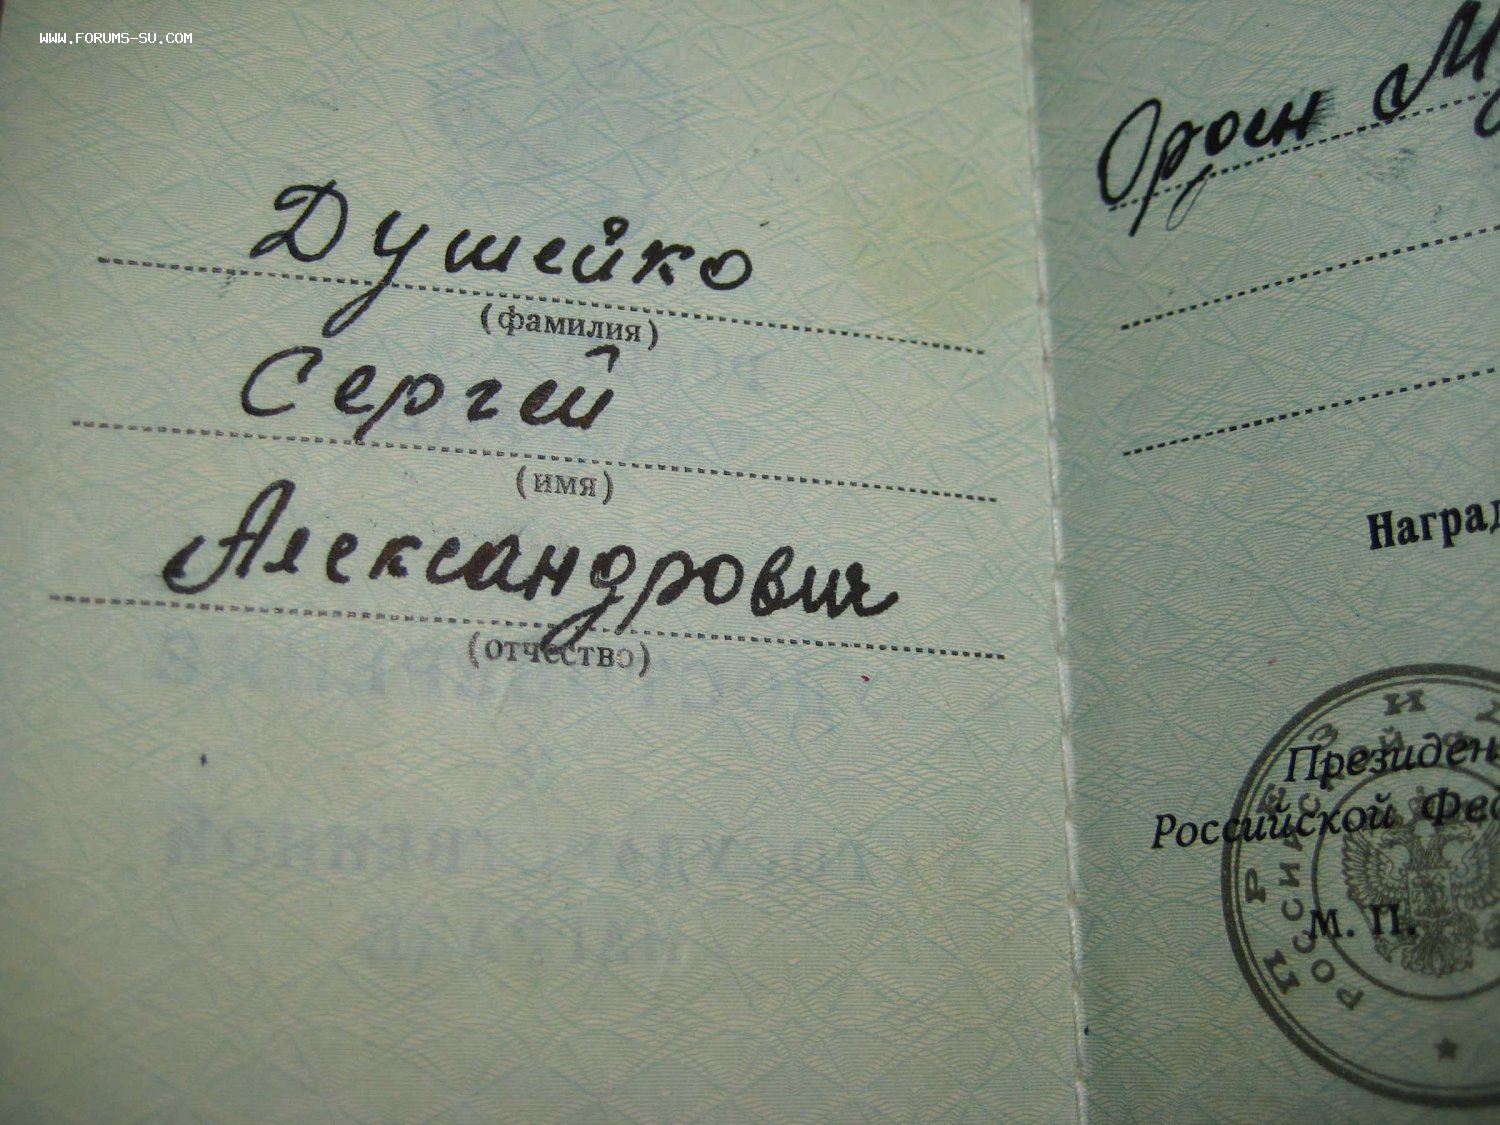 WWW.FORUMS-SU.COM
Душейко
(фамилия)
Сергей
(имя)
Александрович
(отчество)
Орден М
Наград
Президен
Российской Фед
М. П.